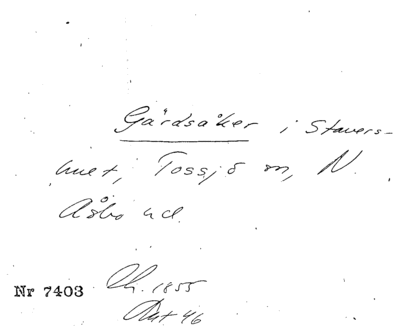 Gårdsåker i Stavers-
huet, Tossjö sn, N.
Åsbo hd.
Nr 7403 Lh. 1855
Akt 46